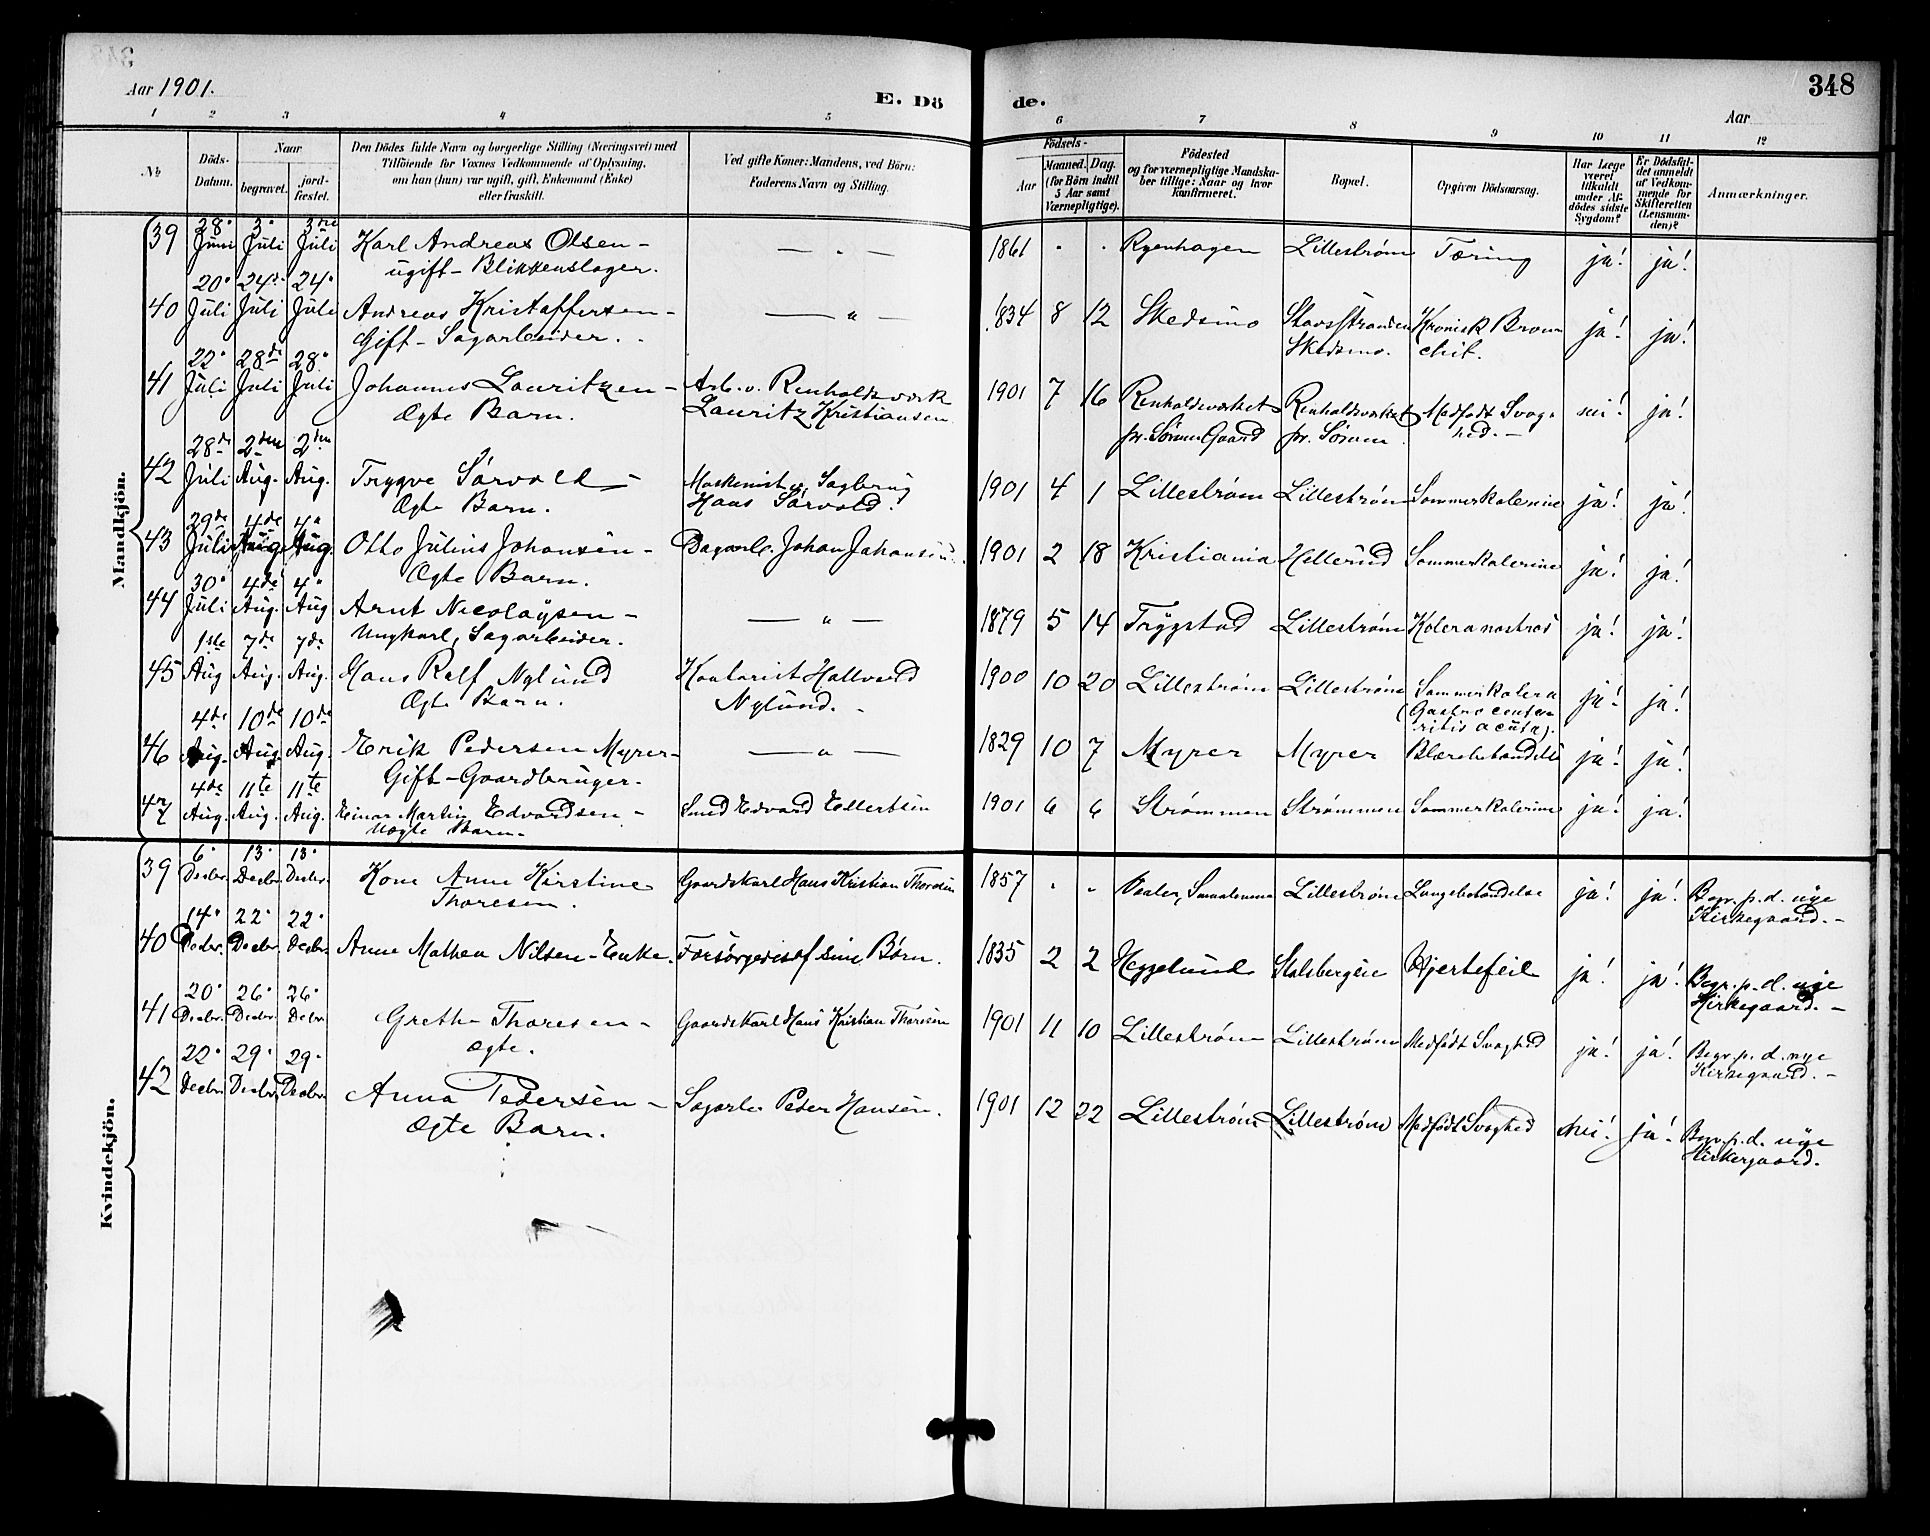 348
Aar 1901. E. Dö de. Aar
1 2 3 4 5 6 7 8 9 10 11 12
No
Döds-Datum.
Naar
begravet.
jord-fæstet.
Den Dödes fulde Navn og borgerlige Stilling (Næringsvei) med
Tilföiende for Voxnes Vedkommende af Oplysning,
om han (hun) var ugift, gift, Enkemand (Enke)
eller fraskilt.
Ved gifte Koner: Mandens, ved Börn:
Faderens Navn og Stilling.
Födsels-
Aar
Maaned. Dag.
(for Börn indtil
5 Aar samt
Værnepligtige).
Födested
og for værnepligtige Mandska-
ber tillige: Naar og hvor
Konfirmeret.
Bopæl.
Opgiven Dödsaarsag.
Har Læge
været
tilkaldt
under Af-
dödes sidste
Sygdom?
Er Dödsfal-
det anmeldt
af Vedkom-
mende for
Skifteretten
(Lensman-
den)?
Anmærkninger.
Mandkjön.
39 28. Juni 3. Juli 3die Juli Karl Andreas Olsen - — " — 1861 " " Ryenhagen Lillestrøm Tæring ja! ja!
ugift - Blikkenslager.
40 20. Juli 24. Juli 24. Juli Andreas Kristoffersen - — " — 1834 8 12 Skedsmo Stavsstranden Kronisk Bron
Gift - Sagarbeider. Skedsmo. chit. ja! ja!
41 22. Juli 28de Juli 28. Juli Johannes Lauritzen - Arb. v. Renholdsværk 1901 7 16 Renholdsværket Renholdsværket Medfødt Svag-
Ægte Barn. Lauritz Kristiansen pr. Sørum Gaard pr. Sørum hed. - nei! ja!
42 28de Juli 2den Aug. 2den Aug. Trygve Sörvold - Maskinist v. Sagbrug 1901 4 1 Lillestrøm Lillestrøm Sommerkolerine ja! ja!
Ægte Barn. Hans Sörvold.
43 29de Juli 4de Aug. 4. Aug. Otto Julius Johansen - Dagarb. Johan Johansen 1901 2 18 Kristiania Hellerud Sommerkolerine ja! ja!
Ægte Barn.
44 30. Juli 4de Aug. 4. Aug Arnt Nicolaysen - — " — 1879 5 14 Trygstad Lillestrøm Kolera nostras ja! ja!
Ungkarl, Sagarbeider.
45 1ste Aug 7de Aug. 7de Aug. Hans Rolf Nylund Kontorist Hallvard 1900 10 20 Lillestrøm Lillestrøm Sommerkolera
Ægte Barn. Nylund. - (Gastro ente-
ritis acuta). ja! ja!
46 4de Aug. 10de Aug 10de Aug. Erik Pedersen Myrer - — " — 1829 10 7 Myrer Myrer Blærebetændelse ja! ja!
Gift - Gaardbruger.
47 4de Aug. 11te Aug. 11te Aug. Einar Martin Edvardsen - Smed Edvard Ellertsen 1901 6 6 Strømmen Strømmen Sommerkolerine ja! ja!
Uægte Barn.
Kvindekjön.
39 6. Decbr. 13. Decbr. 13. Decbr. Kone Anne Kirstine Gaardskarl Hans Kristian Thoresen 1857 " " Vaaler, Smaalenene Lillestrøm Lungebetændelse ja! ja! Begr. p. d. nye
Thoresen. Kirkegaard. -
40 14. Decbr. 22. Decbr. 22. Decbr. Anne Mathea Nilsen - Enke. Forsörgedes af sine Børn. 1835 2 2 Heggelund Stalsbergeie Hjertefeil ja! ja! Begr. p. d. nye
Kirkegaard. -
41 20. Decbr. 26. Decbr. 26. Decbr. Grethe Thoresen - Gaardskarl Hans Kristian Thoresen 1901 11 10 Lillestrøm Lillestrøm Medfødt Svaghed ja! ja! Begr. p. d. nye
ægte. Kirkegaard. -
42 22. Decbr. 29. Decbr. 29. Decbr. Anna Pedersen - Sagarb. Peder Hansen. 1901 12 22 Lillestrøm Lillestrøm Medfødt Svaghed Nei! ja! Begr. p. d. nye
Ægte Barn. Kirkegaard.